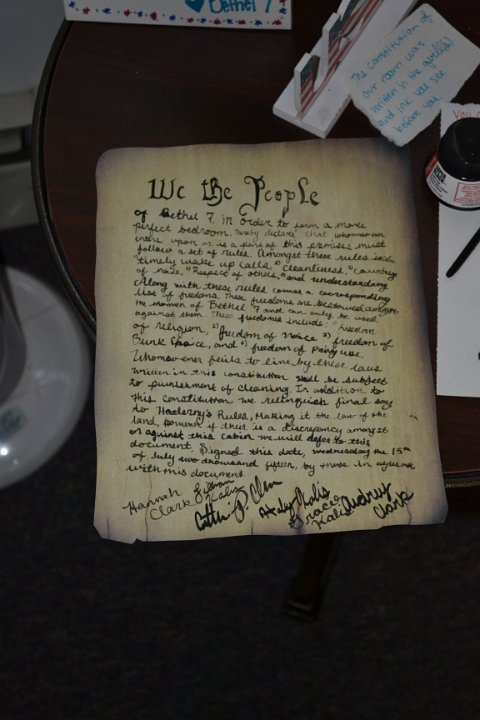 Bethel 7
The constitution of
our room was
written in the quill(s)
and ink you see
before you
We the People
of Bethel 7, in order to form a more
perfect bedroom, hereby declare that whomever
enters upon or is a part of this premises must
follow a set of rules. Amongst these rules
"timely wake up calls, cleanliness, "courtesy
of noise, "Respect of others, and understanding.
Along with these rules comes a corresponding
list of freedoms. These freedoms are bestowed amongst
the women of Bethel 7 and can only be used
against them. These freedoms include: freedom
of religion, 2) freedom of voice 3) freedom of
Bunk Choice, and 4) freedom of pening use.
Whomsoever fails to live by these laws
written in this constitution shall be subject
to punishment of cleaning. In addition to
this constitution we relinquish final say
to Rules, Making it the law of the
land, however if there is a discrepancy amongst
or against this cabin we will defer to this
document. Signed this date, wednesday the 15th
of July two thousand fifteen, by those in agreement
with this document.
Hannah
Clark
Gracie
Kali Audrey
Clark